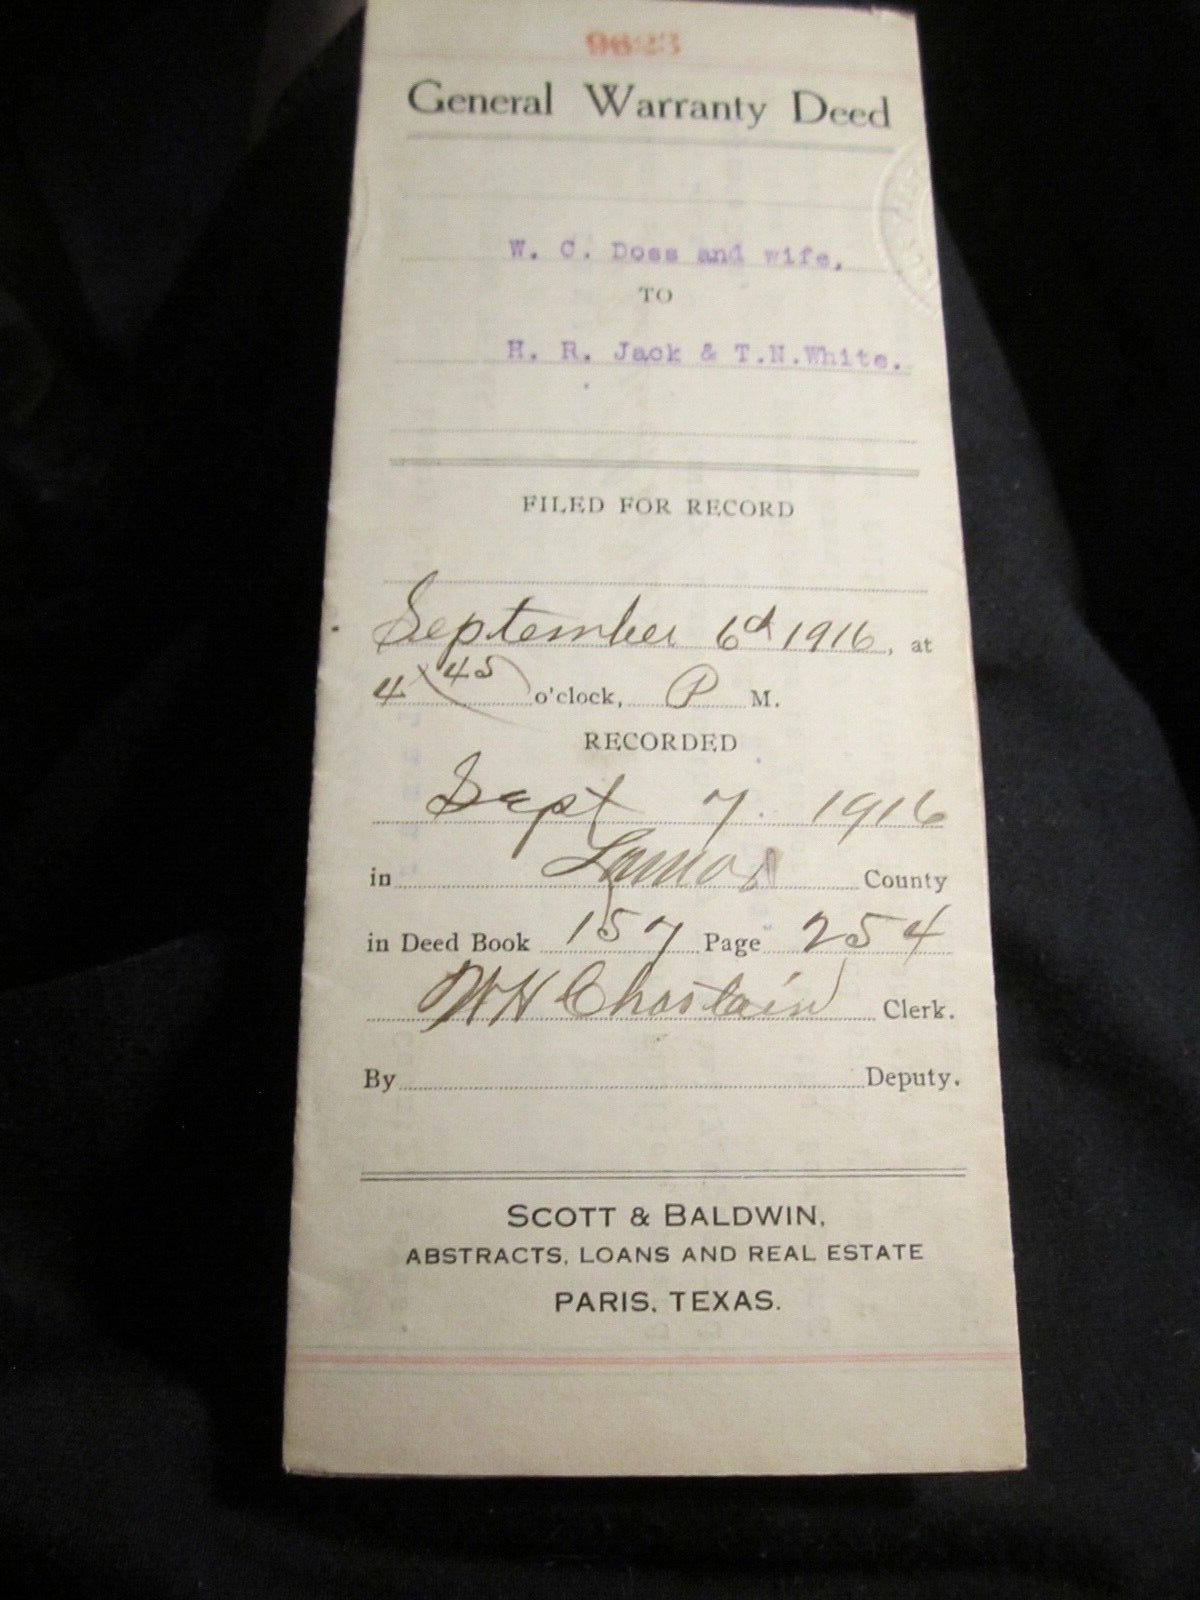 9623
General Warranty Deed
W. C. Doss and wife,
TO
H. R. Jack & T.N.White.
FILED FOR RECORD
September 6d 1916, at
4 45 o'clock, P M.
RECORDED
Sept 7. 1916
in Lamar County
in Deed Book 157 Page 254
WH Chastain Clerk.
By Deputy.
SCOTT & BALDWIN,
ABSTRACTS, LOANS AND REAL ESTATE
PARIS, TEXAS.